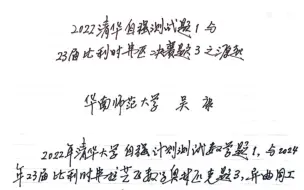 2022清华自强测试题1与
23届比利时 决赛题3之源
华南师范大学 吴康
2022年清华大学自强计划测试数学题1,与2024
年23届比利时 数学奥林匹克题3,